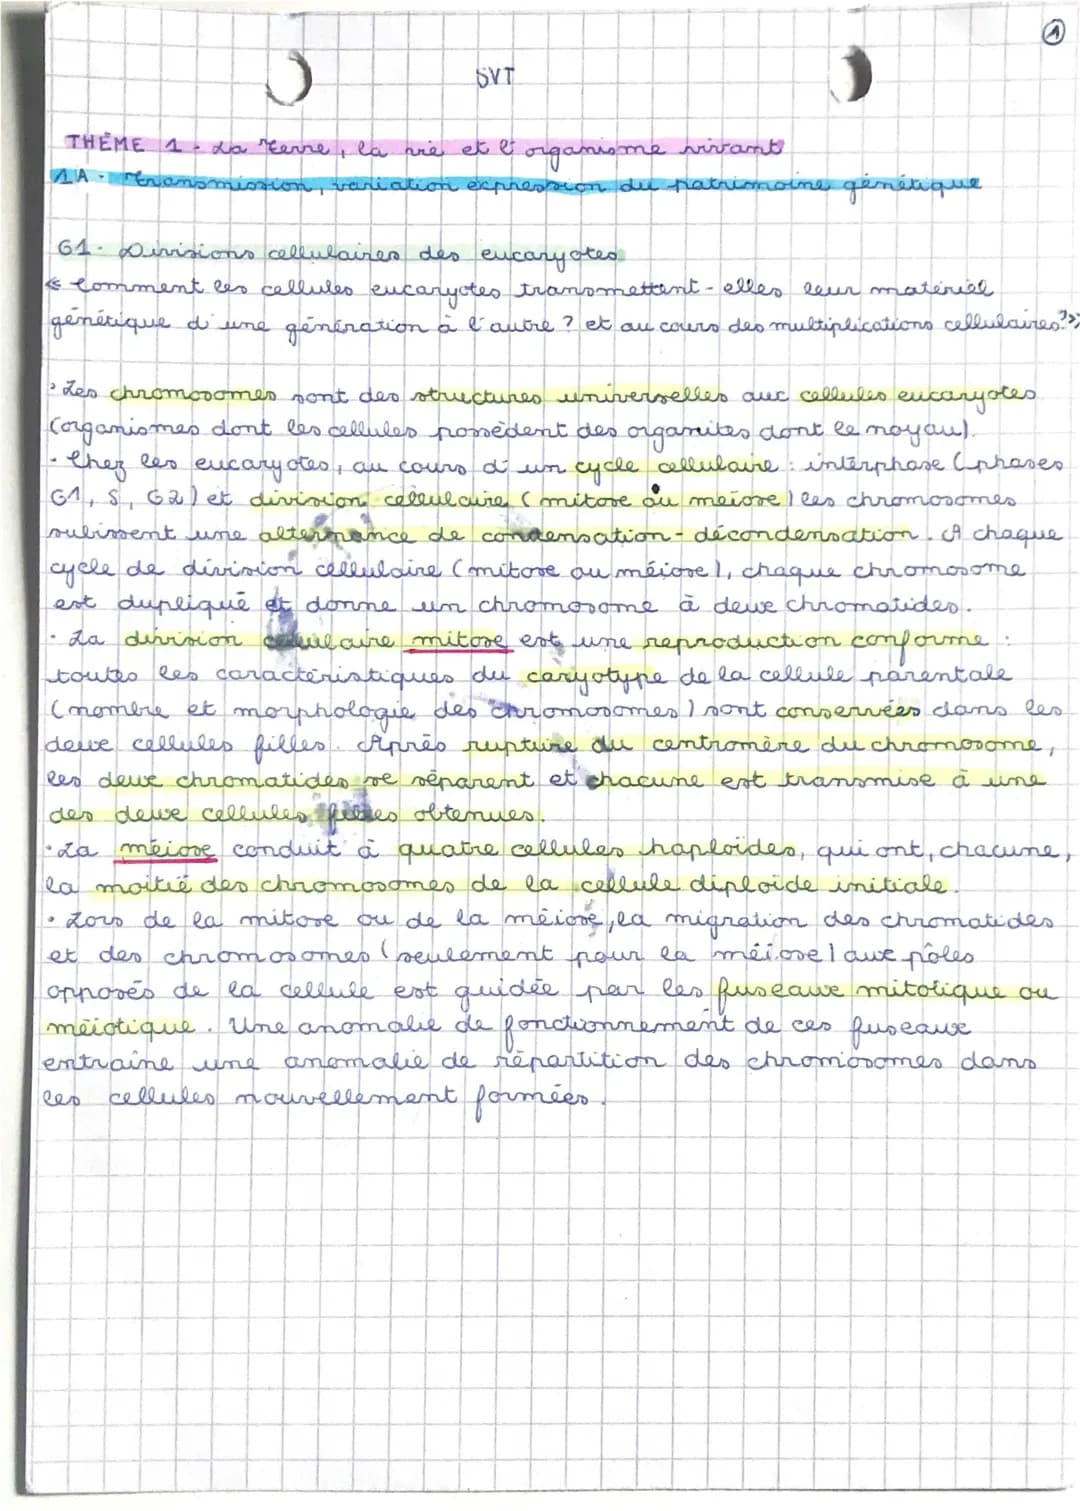 1
SVT
THÈME 1 - La Terre, la vie et l'organisme vivant
1A - Transmission, variation expression du patrimoine génétique
G1 - Divisions cellulaires des eucaryotes
« Comment les cellules eucaryotes transmettent-elles leur matériel
génétique d'une génération à l'autre ? et au cours des multiplications cellulaires ? »
• Les chromosomes sont des structures universelles aux cellules eucaryotes
(organismes dont les cellules possèdent des organites dont le noyau).
• Chez les eucaryotes, au cours d'un cycle cellulaire : interphase (phases
G1, S, G2) et division cellulaire (mitose ou meiose) les chromosomes
subissent une alternance de condensation - décondensation. A chaque
cycle de division cellulaire (mitose ou méiose), chaque chromosome
est dupliqué et donne un chromosome à deux chromatides.
• La division cellulaire mitose est une reproduction conforme :
toutes les caractéristiques du caryotype de la cellule parentale
(nombre et morphologie des chromosomes) sont conservées dans les
deux cellules filles. Après rupture du centromère du chromosome,
les deux chromatides se séparent et chacune est transmise à une
des deux cellules filles obtenues.
• La méiose conduit à quatre cellules haploïdes, qui ont, chacune,
la moitié des chromosomes de la cellule diploïde initiale.
• Lors de la mitose ou de la méiose, la migration des chromatides
et des chromosomes (seulement pour la méiose) aux pôles
opposés de la cellule est guidée par les fuseaux mitotique ou
méiotique. Une anomalie de fonctionnement de ces fuseaux
entraîne une anomalie de répartition des chromosomes dans
les cellules nouvellement formées.